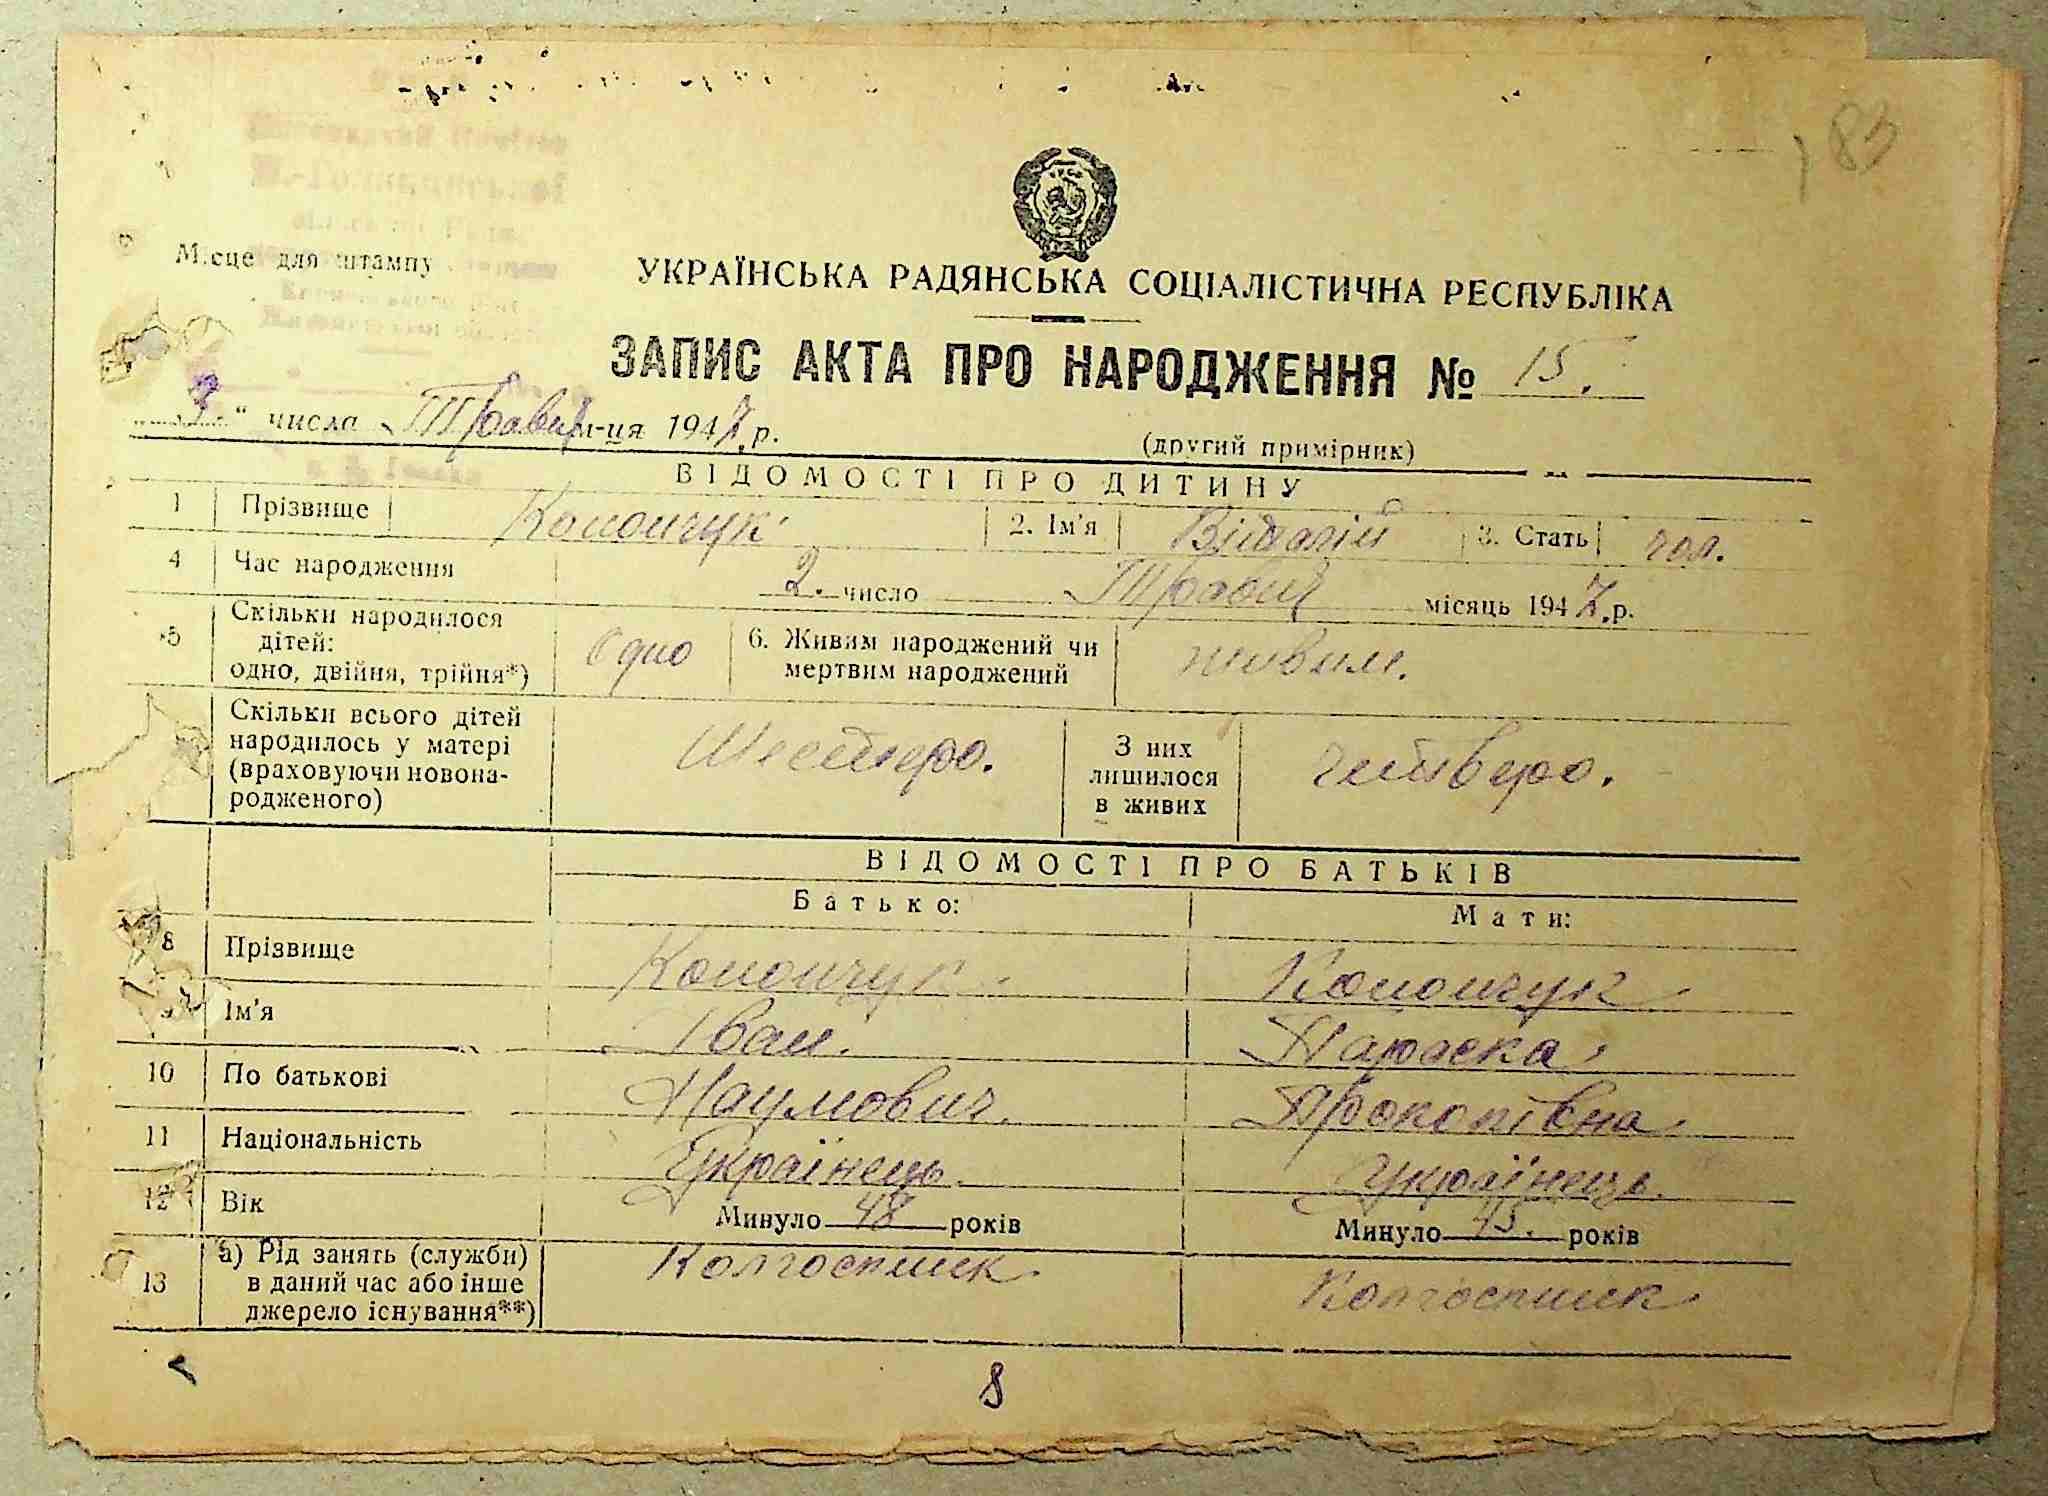 183
Місце для штампу
УКРАЇНСЬКА РАДЯНСЬКА СОЦІАЛІСТИЧНА РЕСПУБЛІКА
ЗАПИС АКТА ПРО НАРОДЖЕННЯ № 15.
" числа Травня м-ця 1947 р.
(другий примірник)
ВІДОМОСТІ ПРО ДИТИНУ
1 Прізвище Конончук 2. Ім'я Віталій 3. Стать чол.
4 Час народження 2. число Травня місяць 1947 р.
5 Скільки народилося дітей: одно, двійня, трійня*) Одно 6. Живим народжений чи мертвим народжений живим.
Скільки всього дітей народилось у матері (враховуючи новонародженого) Шестеро. З них лишилося в живих четверо.
ВІДОМОСТІ ПРО БАТЬКІВ
Батько: Мати:
8 Прізвище Конончук Конончук
9 Ім'я Іван. Параска
10 По батькові Наумович. Прокопівна
11 Національність Українець Українець
12 Вік Минуло 48 років Минуло 45. років
13 а) Рід занять (служби) в даний час або інше джерело існування**) Колгоспник Колгоспник
8